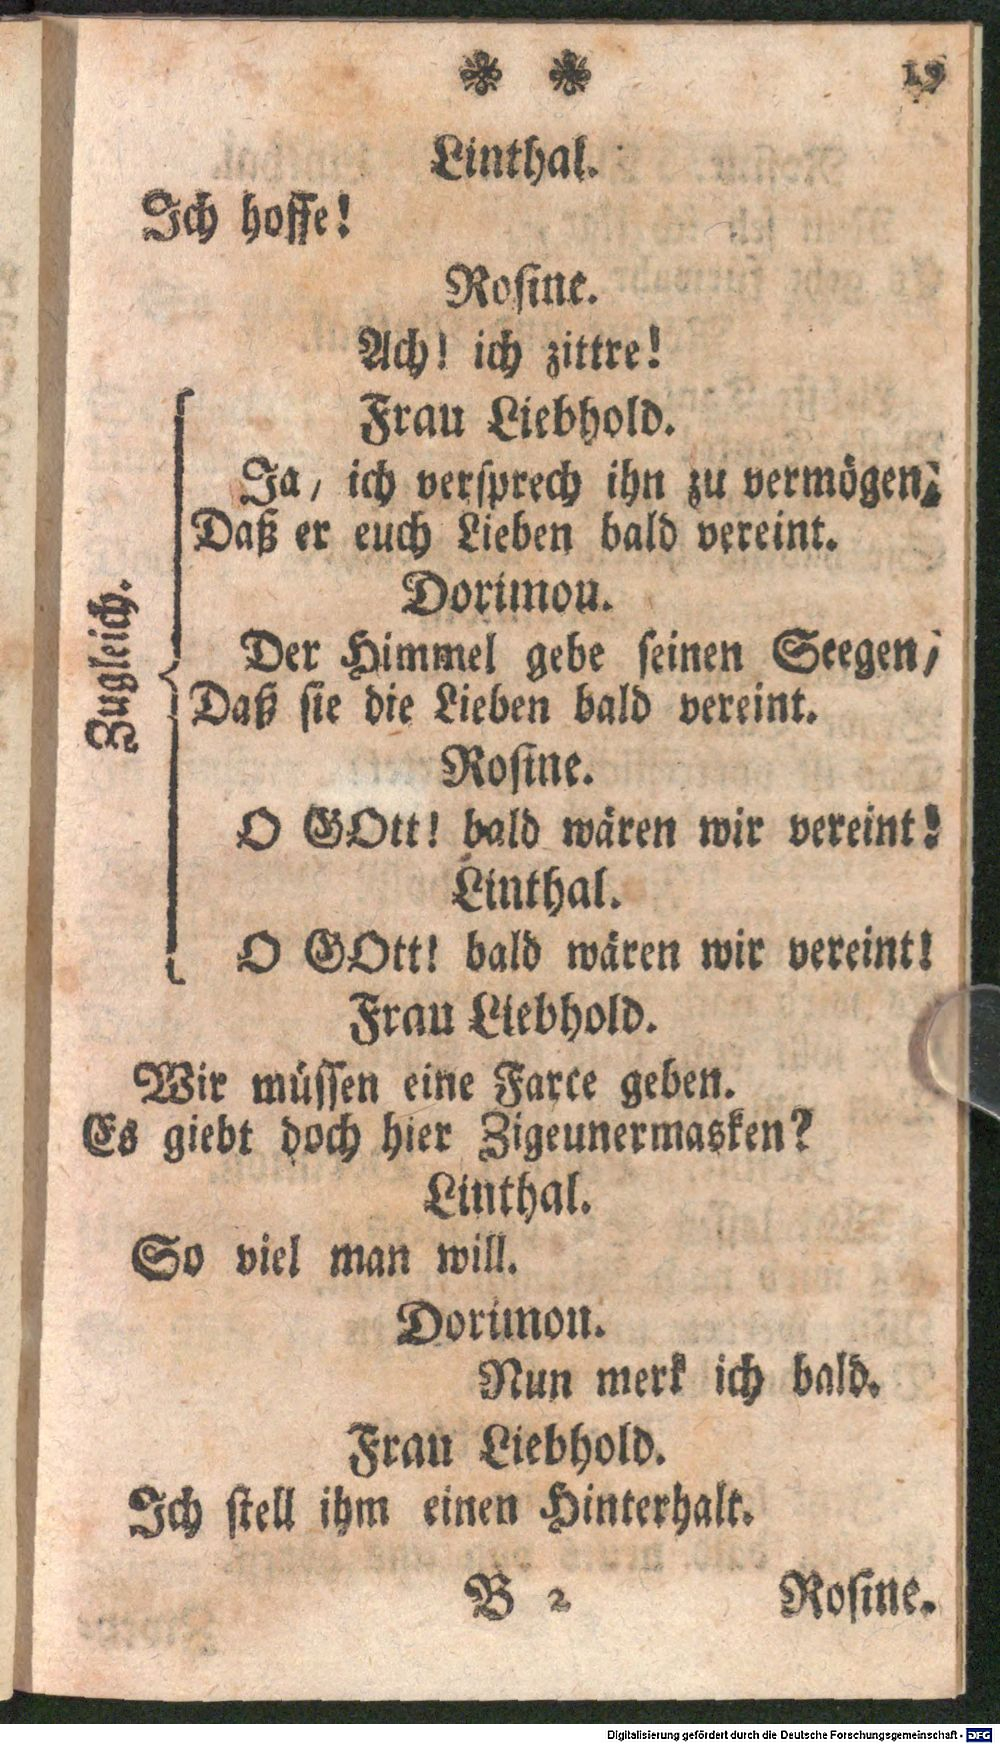 19
Linthal.
Ich hoffe!
Rosine.
Ach! ich zittre!
Zugleich.
Frau Liebhold.
Ja, ich versprech ihn zu vermögen;
Daß er euch Lieben bald vereint.
Dorimon.
Der Himmel gebe seinen Seegen,
Daß sie die Lieben bald vereint.
Rosine.
O GOtt! bald wären wir vereint!
Linthal.
O GOtt! bald wären wir vereint!
Frau Liebhold.
Wir müssen eine Farce geben.
Es giebt doch hier Zigeunermasken?
Linthal.
So viel man will.
Dorimon.
Nun merk ich bald.
Frau Liebhold.
Ich stell ihm einen Hinterhalt.
B 2 Rosine.
Digitalisierung gefördert durch die Deutsche Forschungsgemeinschaft - DFG